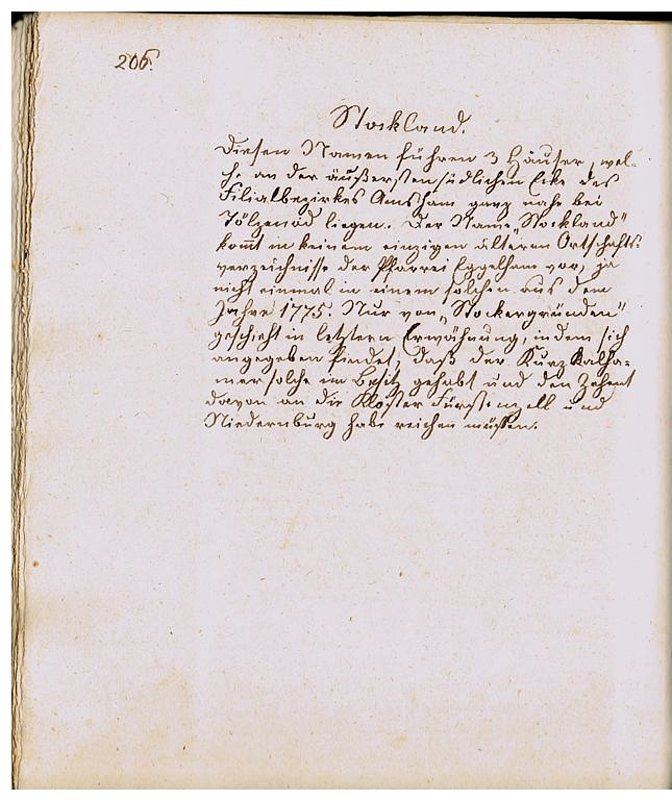 206.
Stockland.
Diesen Namen führen 3 Häuser, wel-
che an der äußersten südlichen Ecke des
Filialbezirkes Amsham ganz nahe bei
Tölzenöd liegen. Der Name „Stockland"
kom̅t in keinem einzigen älteren Ortschafts-
verzeichnisse der Pfarrei Eggelham vor, ja
nicht einmal in einem solchen aus dem
Jahre 1775. Nur von „Stockergründen"
geschieht in letztern Erwähnung, indem sich
angegeben findet, daß der Kurz
mer solche im Besitz gehabt und den Zehent
davon an die Klöster Fürstenzell und
Niedernburg habe reichen müssen.